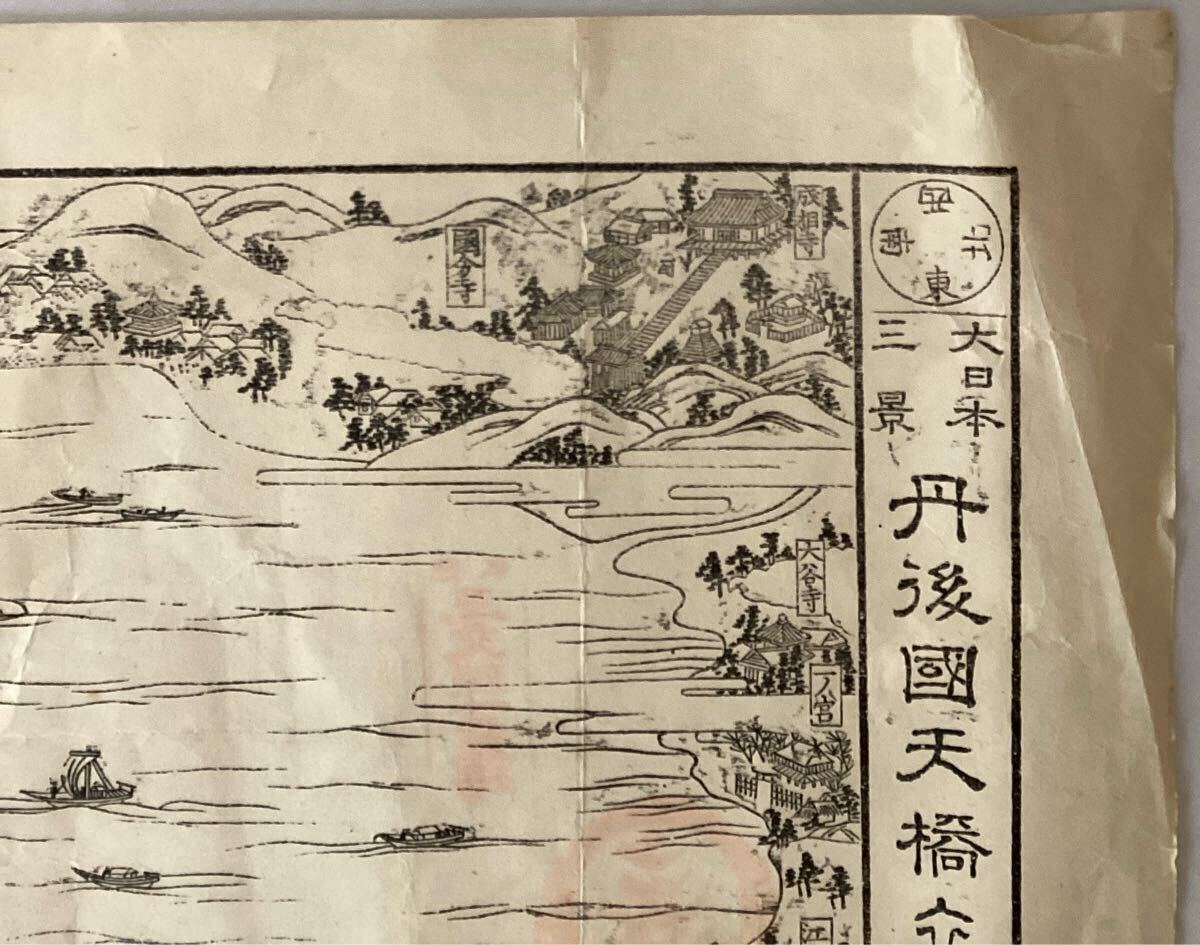 西
北
南
東
大日本
三景
丹後國天橋立
成相寺
國分寺
大谷寺
一ノ宮
江